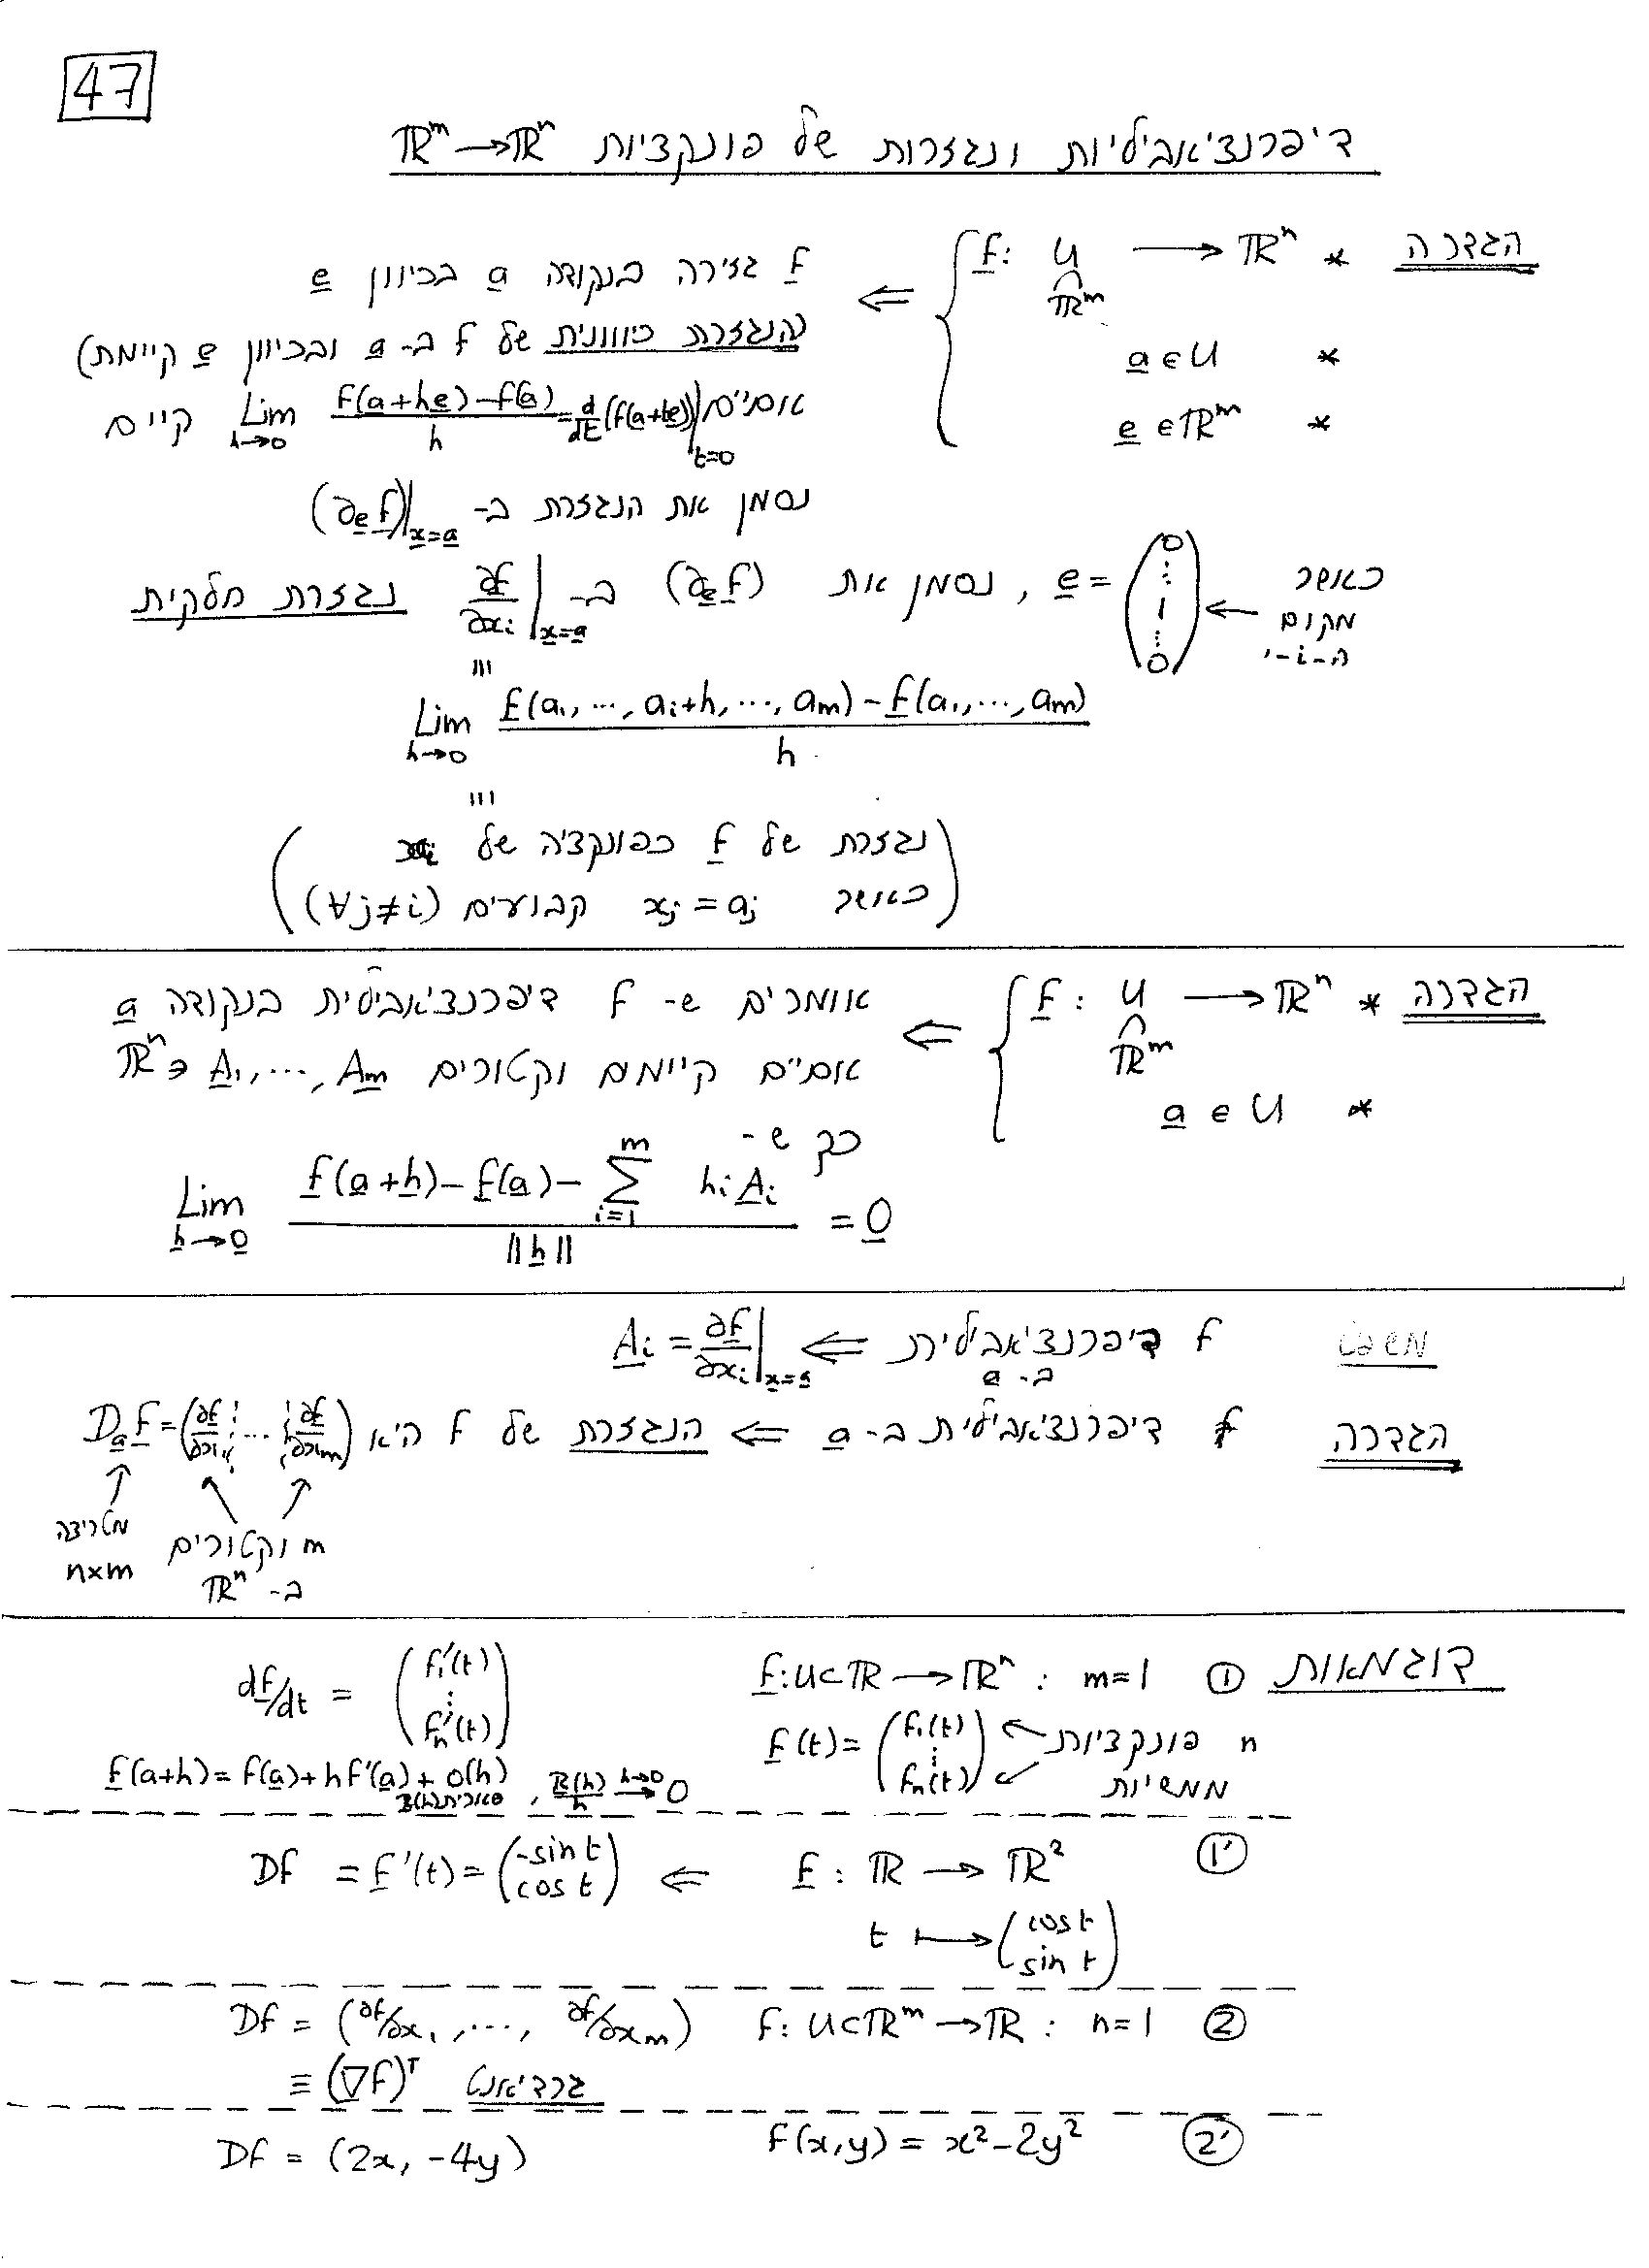 47
דיפרנציאביליות ונגזרות של פונקציות ℝᵐ→ℝⁿ
הגדרה * f: U → ℝⁿ ⇐ f גזירה בנקודה a בכיוון e
∩
ℝᵐ
* a ∈ U (הנגזרת כיוונית של f ב-a ובכיוון e קיימת)
* e ∈ ℝᵐ אם״ם Lim h→0 (f(a+he)-f(a))/h = d/dt (f(a+te))|t=0 קיים
נסמן את הנגזרת ב- (∂e f)|x=a
כאשר e = (0 ⋮ 1 ⋮ 0) ← מקום ה-i-י, נסמן את (∂e f) ב- ∂f/∂xi |x=a נגזרת חלקית
≡
Lim h→0 (f(a₁,⋯,ai+h,⋯,am) - f(a₁,⋯,am))/h
≡
(נגזרת של f כפונקציה של xi
כאשר xj = aj קבועים (∀j≠i))
הגדרה * f: U → ℝⁿ ⇐ אומרים ש- f דיפרנציאבילית בנקודה a
∩
ℝᵐ
* a ∈ U אם״ם קיימים וקטורים A₁,⋯,Am ∈ ℝⁿ
כך ש-
Lim h→0 (f(a+h) - f(a) - Σ i=1 m hi Ai)/||h|| = 0
משפט f דיפרנציאבילית ב-a ⇐ Ai = ∂f/∂xi |x=a
הגדרה f דיפרנציאבילית ב-a ⇐ הנגזרת של f היא Da f = (∂f/∂x₁ ¦ ⋯ ¦ ∂f/∂xm)
m וקטורים ב- ℝⁿ
מטריצה n×m
דוגמאות ① m=1 : f: U⊂ℝ → ℝⁿ df/dt = (f₁'(t) ⋮ fn'(t))
n פונקציות ממשיות f(t) = (f₁(t) ⋮ fn(t))
f(a+h) = f(a) + hf'(a) + o(h) שארית R(h), R(h)/h h→0 → 0
①' f: ℝ → ℝ² ⇐ Df = f'(t) = (-sin t cos t)
t ↦ (cos t sin t)
② n=1 : f: U⊂ℝᵐ → ℝ Df = (∂f/∂x₁,⋯, ∂f/∂xm)
≡ (∇f)ᵀ גרדיאנט
②' f(x,y) = x²-2y² Df = (2x, -4y)